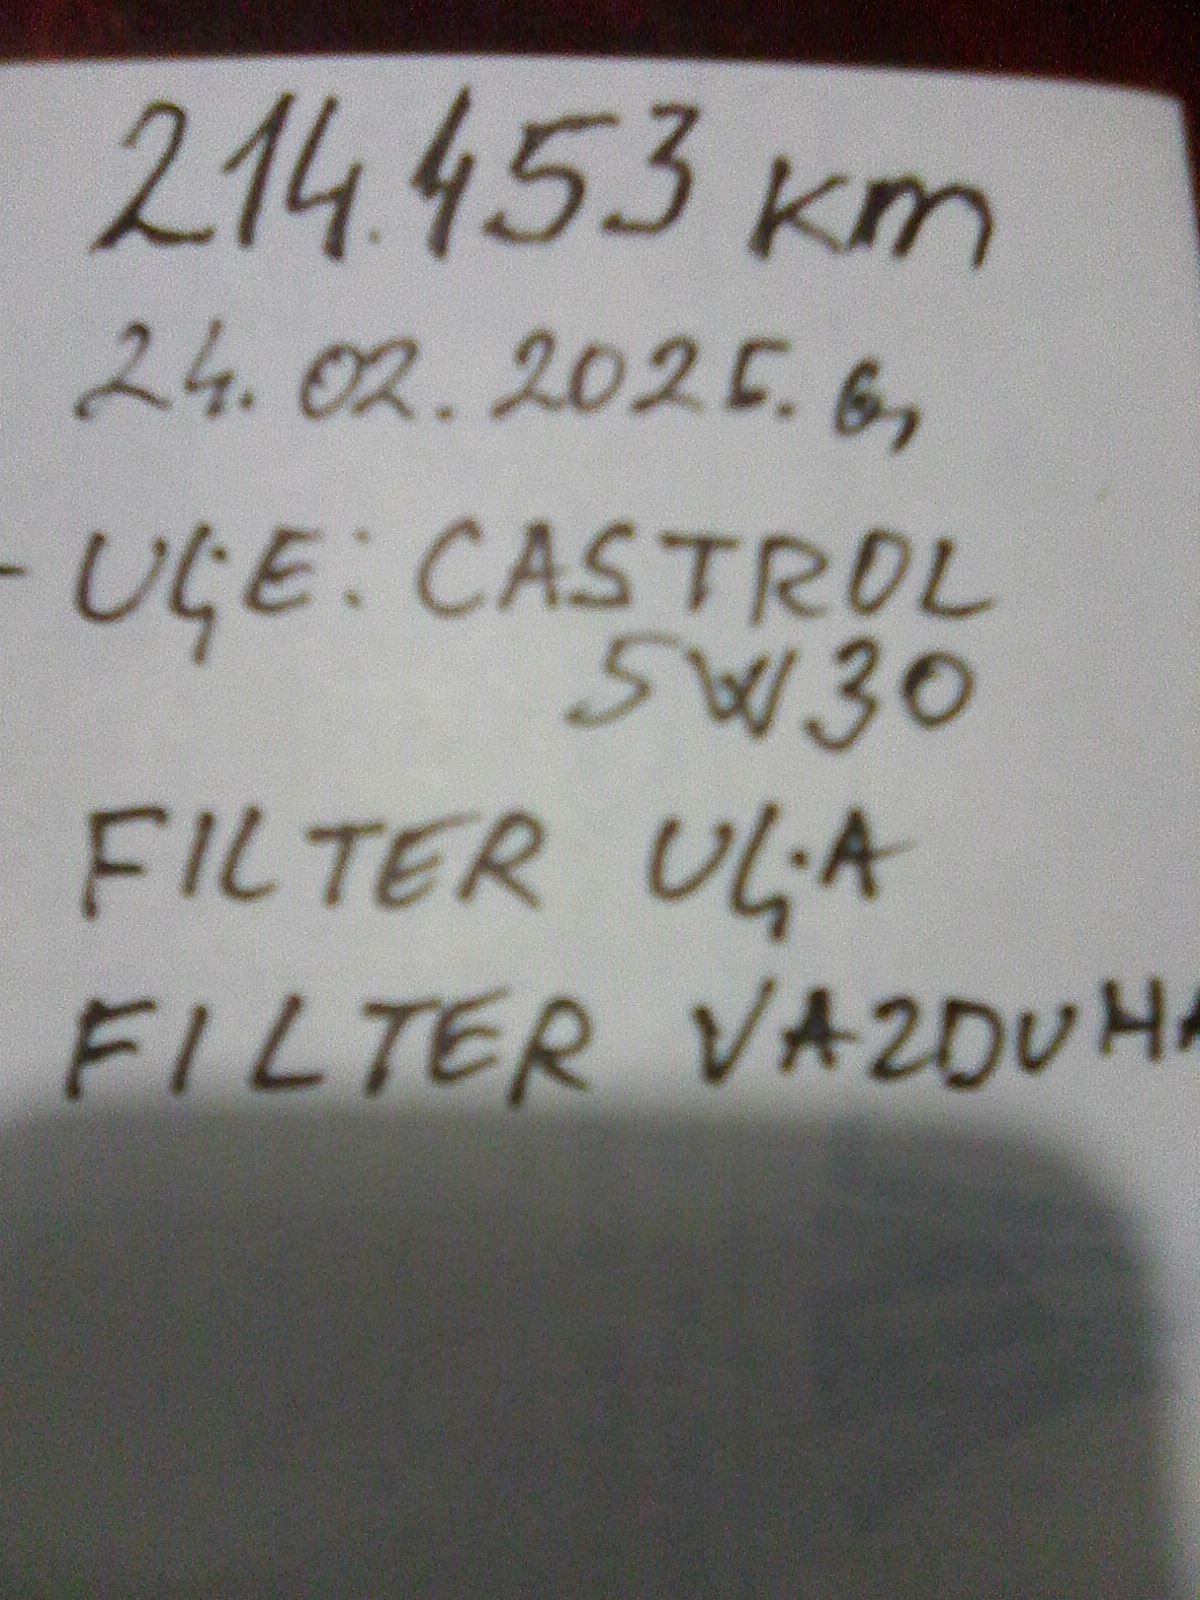 214.453 km
24.02.2025. G,
- ULJE: CASTROL
5W30
FILTER ULJA
FILTER VAZDUHA